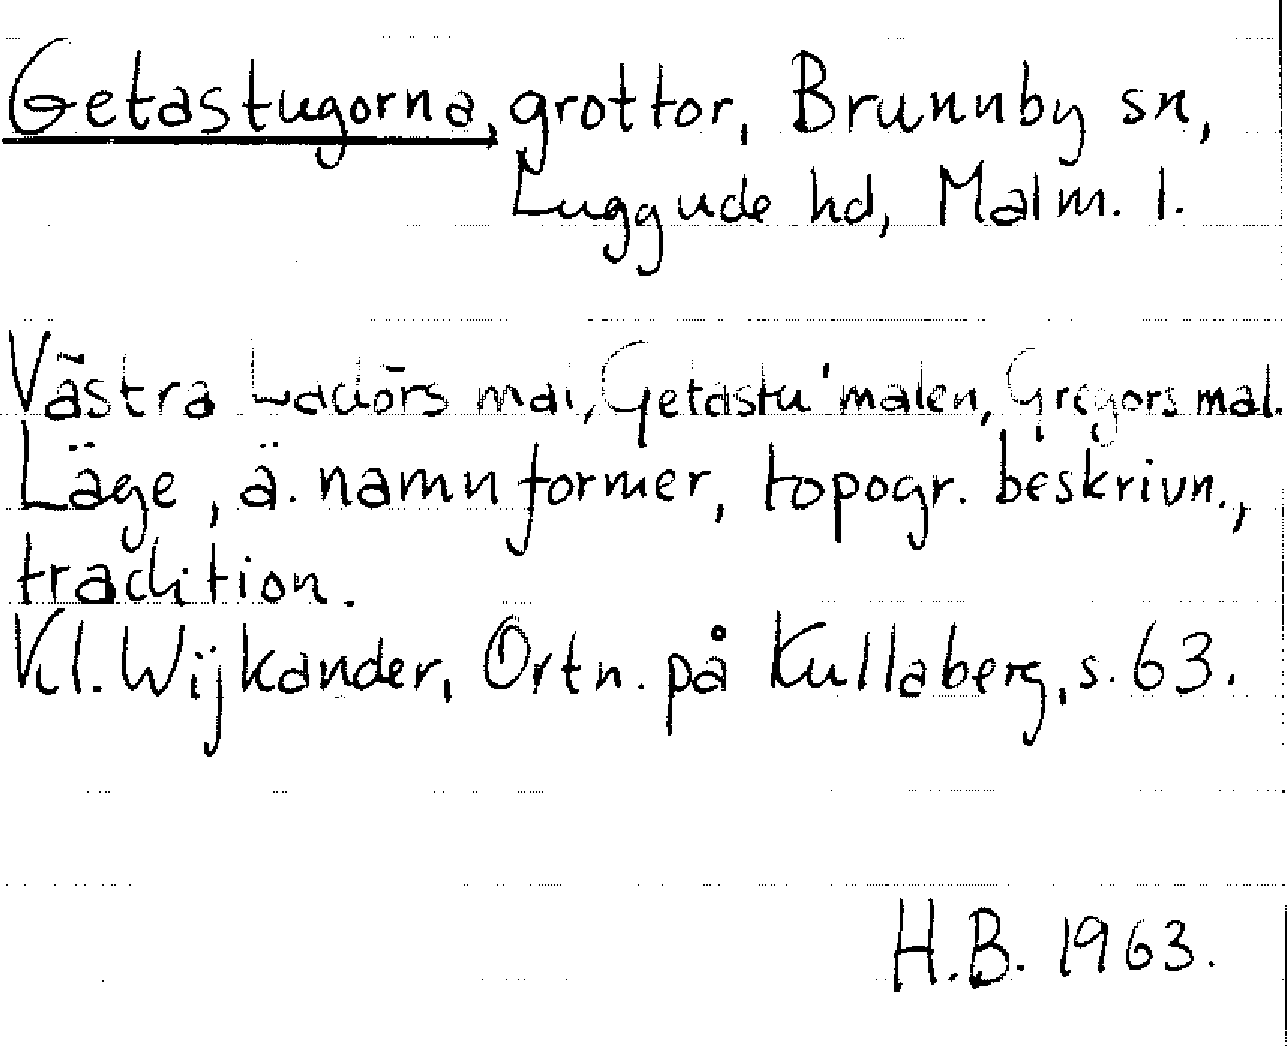 Getastugorna, grottor, Brunnby sn,
Luggude hd, Malm. l.
Västra Ladörs mal, Getastu'malen, Gregors mal.
Läge, ä. namnformer, topogr. beskrivn.,
tradition.
Vil. Wijkander, Ortn. på Kullaberg, s. 63.
H.B. 1963.